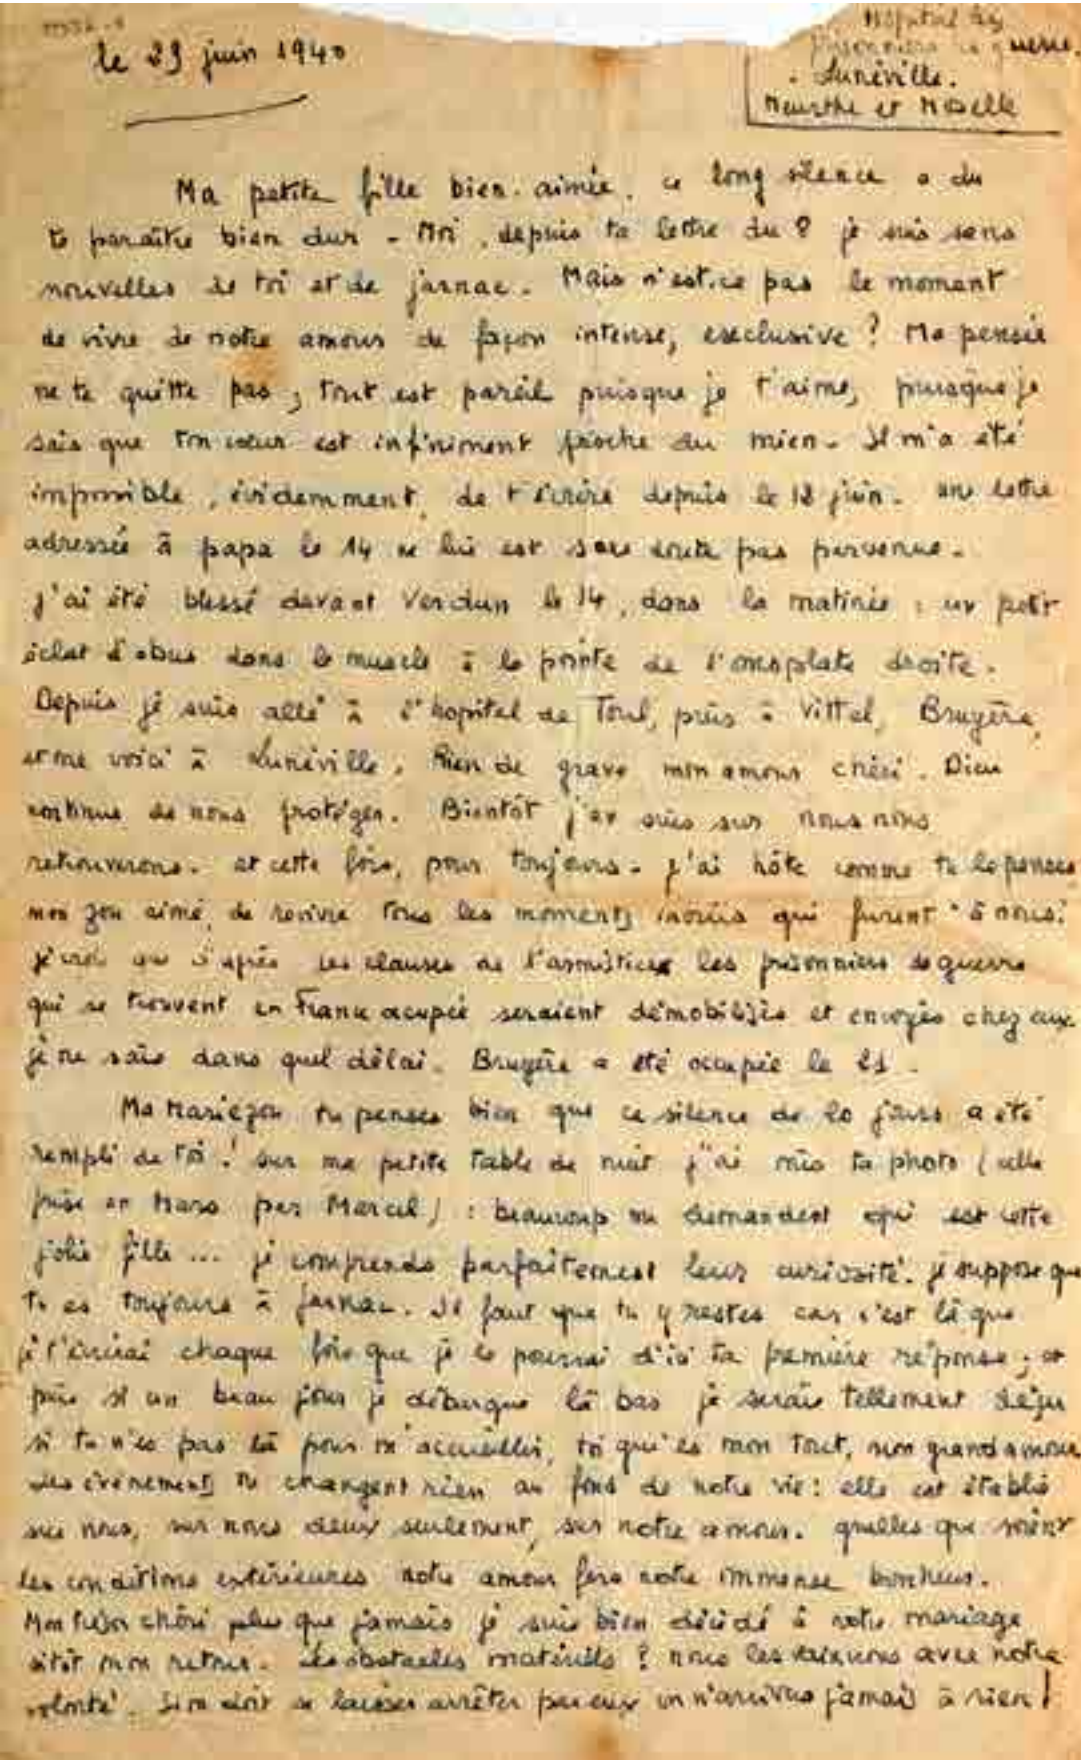 le 29 juin 1940
Hôpital des
prisonniers de guerre.
Lunéville.
Meurthe et Moselle
Ma petite fille bien-aimée, ce long silence a du
te paraître bien dur - Moi, depuis ta lettre du 8 je suis sans
nouvelles de toi et de jarnac. Mais n'est-ce pas le moment
de vivre de notre amour de façon intense, exclusive ? Ma pensée
ne te quitte pas ; tout est pareil puisque je t'aime, puisque je
sais que ton cœur est infiniment proche du mien - Il m'a été
impossible, évidemment, de t'écrire depuis le 12 juin. une lettre
adressée à papa le 14 ne lui est sans doute pas parvenue -
J'ai été blessé devant Verdun le 14, dans la matinée : un petit
éclat d'obus dans le muscle à la pointe de l'omoplate droite.
Depuis je suis allé à l'hopital de Toul, puis à Vittel, Bruyère,
et me voici à Lunéville. Rien de grave mon amour chéri. Dieu
continue de nous protéger. Bientôt j'en suis sur nous nous
retrouverons - et cette fois, pour toujours - J'ai hâte comme tu le penses
mon zou aimé, de revivre tous les moments inouïs qui furent "à nous."
je crois que d'après les clauses de l'armistice les prisonniers de guerre
qui se trouvent en France occupée seraient démobilisés et envoyés chez eux
je ne sais dans quel délai. Bruyère a été occupée le 21.
Ma Mariezou tu penses bien que ce silence de 20 jours a été
rempli de toi ! sur ma petite table de nuit j'ai mis ta photo (celle
prise en Mars par Marcel) : beaucoup me demandent qui est cette
jolie fille ... je comprends parfaitement leur curiosité. je suppose que
tu es toujours à jarnac. Il faut que tu y restes car c'est là que
je t'écrirai chaque fois que je le pourrai d'ici ta première réponse ; et
puis si un beau jour je débarque là bas je serais tellement déçu
si tu n'es pas là pour m'accueillir, toi qui es mon tout, mon grand amour
Les événements ne changent rien au fond de notre vie : elle est établie
sur nous, sur nous deux seulement, sur notre amour. quelles que soient
les conditions extérieures notre amour fera notre immense bonheur.
Mon chéri plus que jamais je suis bien décidé à notre mariage
sitôt mon retour. Les obstacles matériels ? nous les vaincrons avec notre
volonté. Si on doit se laisser arrêter par eux on n'arrivera jamais à rien !